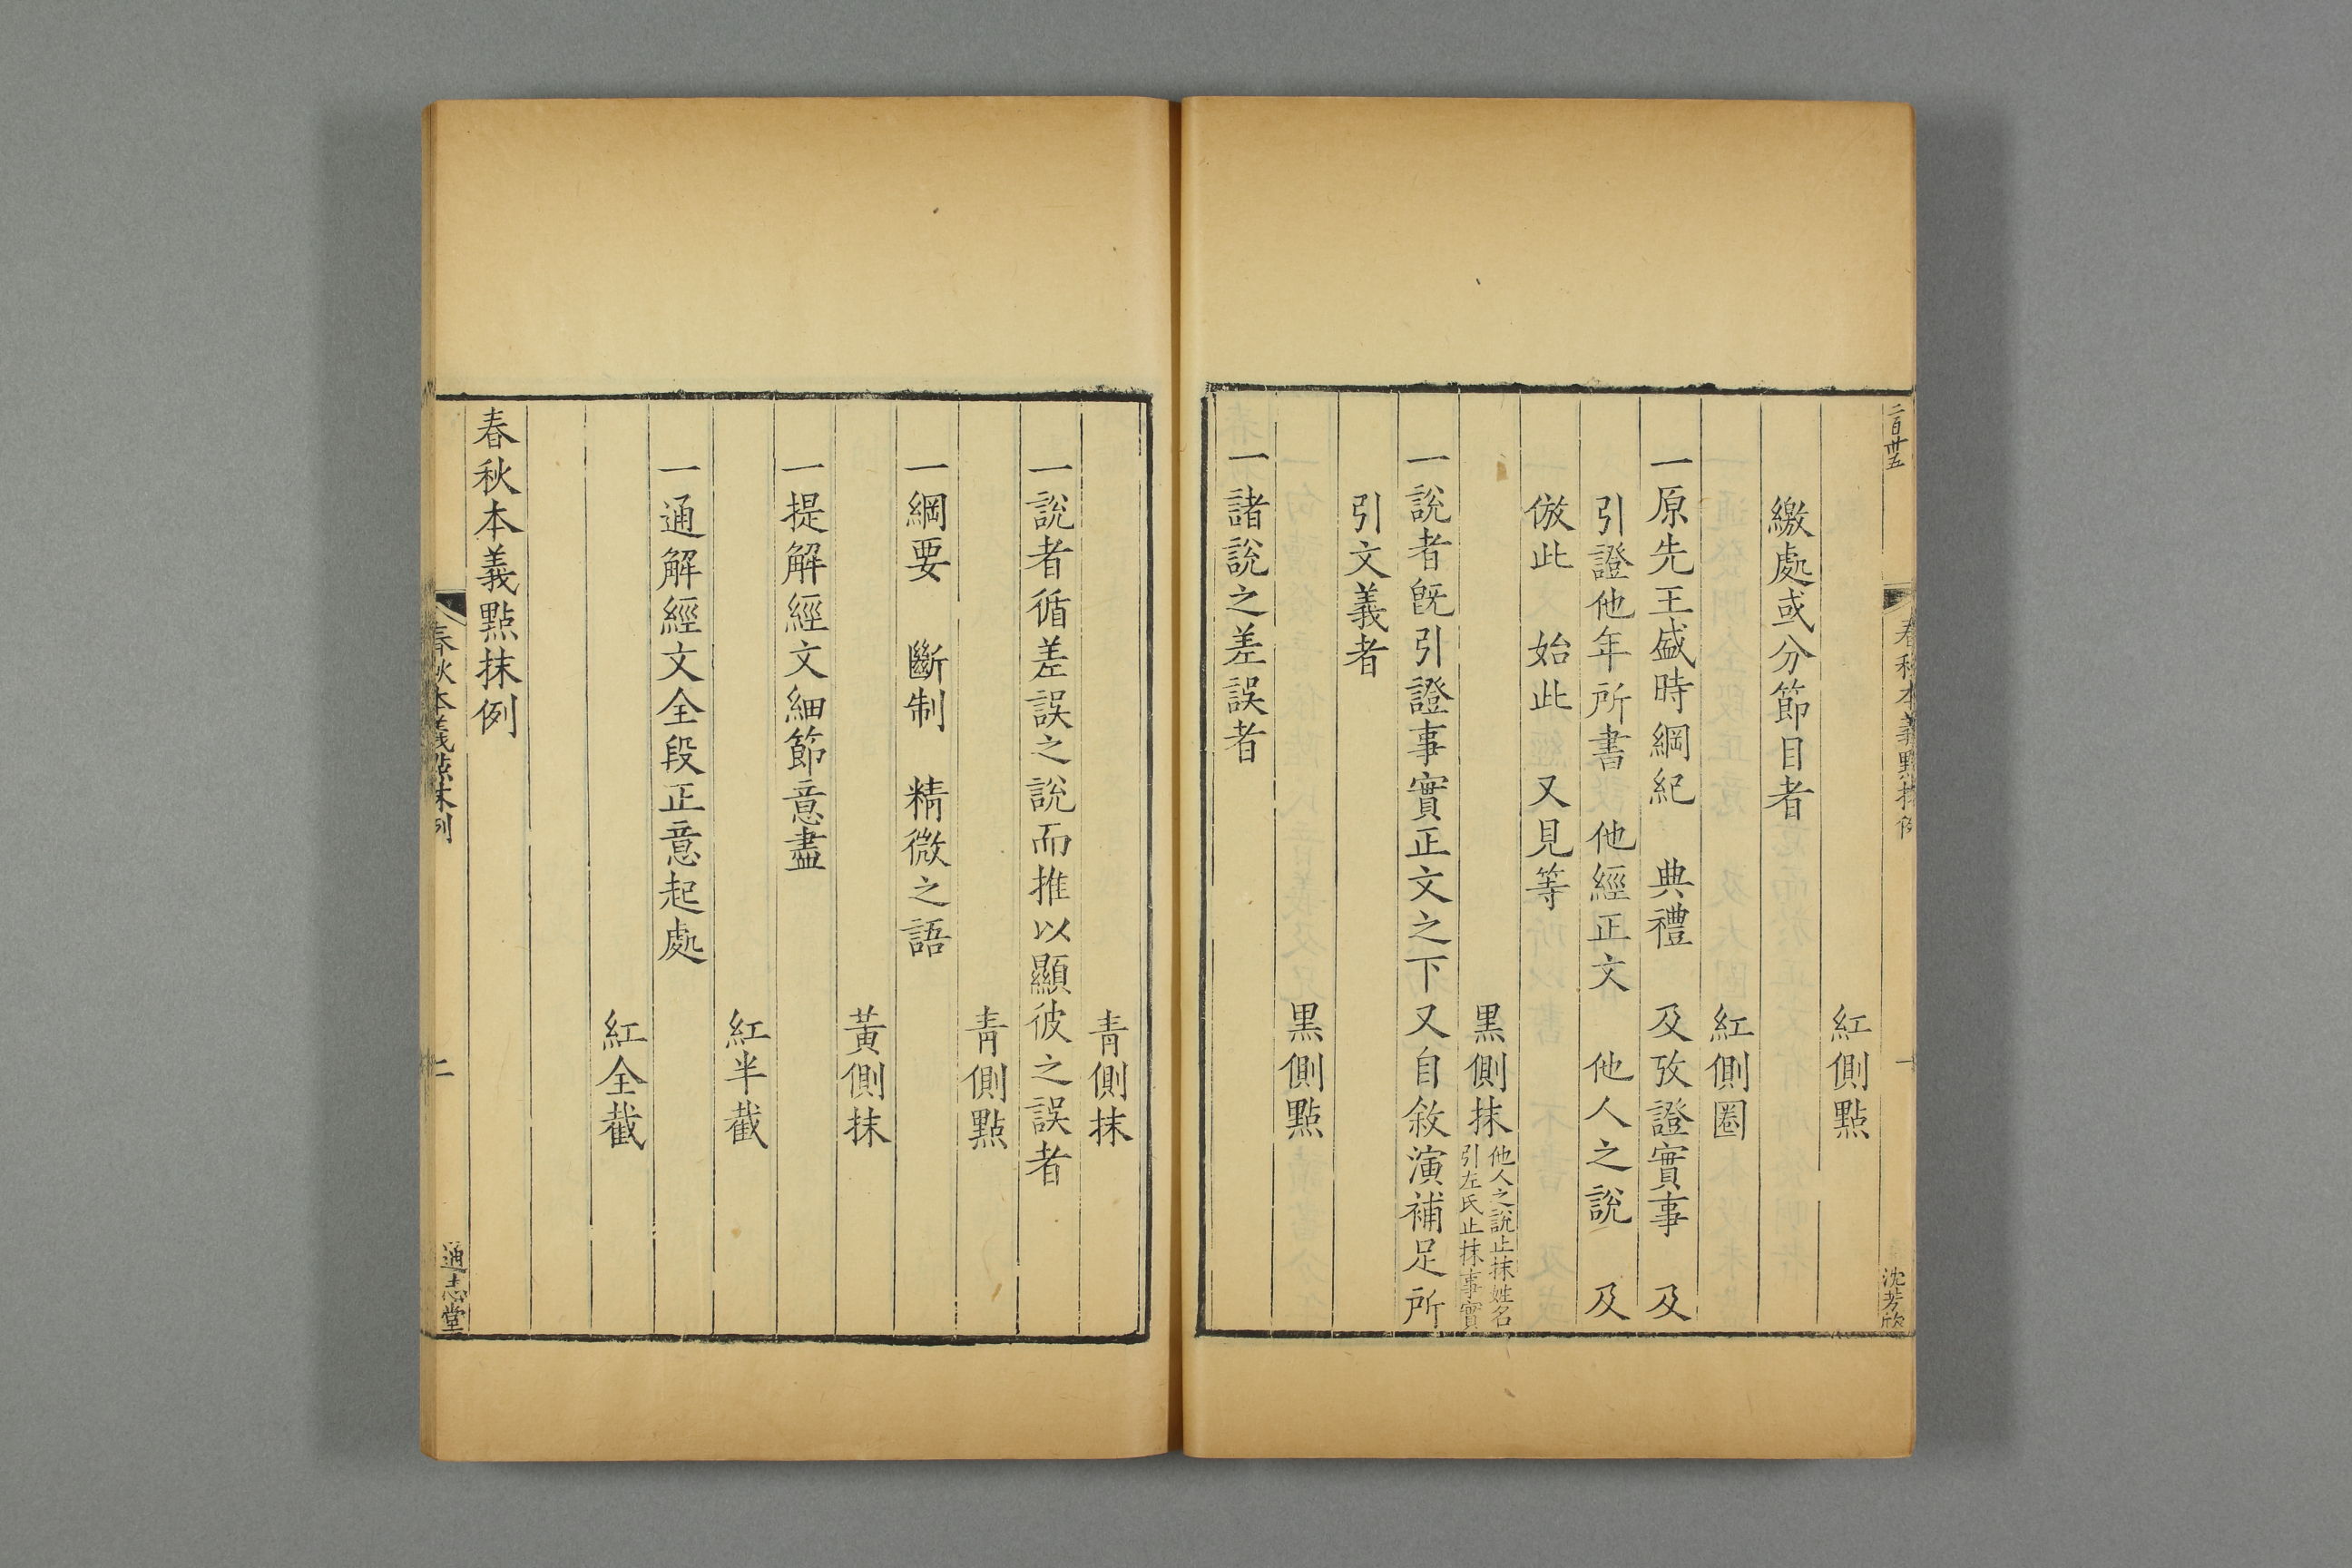 二百卅五
春秋本義點抹例
一
沈芳欣
紅側點
繳處或分節目者
紅側圈
一原先王盛時綱紀　典禮　及攷證實事　及
引證他年所書　他經正文　他人之說　及
倣此　始此　又見等
黑側抹他人之說止抹姓名
引左氏止抹事實
一說者旣引證事實正文之下又自敘演補足所
引文義者
黑側點
一諸說之差誤者
青側抹
一說者循差誤之說而推以顯彼之誤者
青側點
一綱要　斷制　精微之語
黃側抹
一提解經文細節意盡
紅半截
一通解經文全段正意起處
紅全截
春秋本義點抹例
春秋本義點抹例
二
通志堂